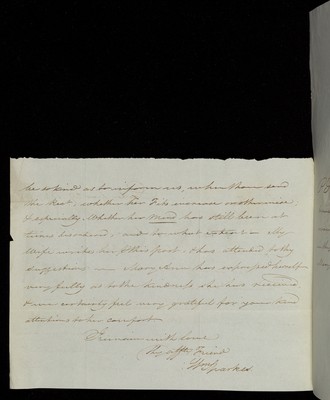 be so kind as to inform us, when thou send
the Rect, whether her fits increase or otherwise;
& especially whether her Mind has still been at
times disordered, and to what extent — My
wife writes her this post & has attended to thy
suggestion — Mary Ann has expressed herself
very fully as to the kindness she has received
& we certainly feel very grateful for your kind
attentions to her comfort
I remain with love
Thy affte Friend
Wm